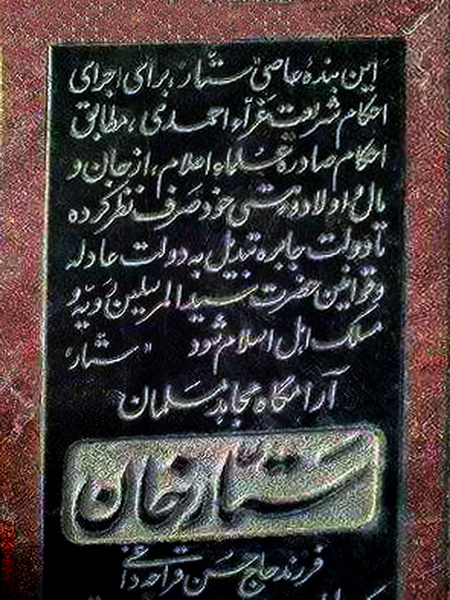 این بندهٔ عاصی "ستّار"، برای اجرای
احکام شریعت غرّاء احمدی، مطابق
احکام صادرهٔ علماء اعلام، از جان و
مال و اولاد و هستی خود صرف نظر کرده
تا دولت جابره تبدیل به دولت عادله
و قوانین حضرت سید المرسلین رویه و
مسلک اهل اسلام شود "ستار"
آرامگاه مجاهد مسلمان
ستّارخان
فرزند حاج حسن قراجه داغی